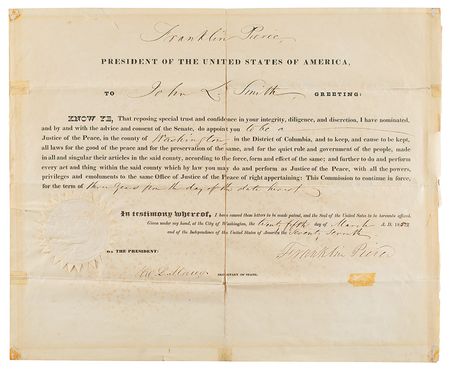 Franklin Pierce,
PRESIDENT OF THE UNITED STATES OF AMERICA,
TO John L. Smith, GREETING:
KNOW YE, That reposing special trust and confidence in your integrity, diligence, and discretion, I have nominated,
and by and with the advice and consent of the Senate, do appoint you to be a
Justice of the Peace, in the county of Washington in the District of Columbia, and to keep, and cause to be kept,
all laws for the good of the peace and for the preservation of the same, and for the quiet rule and government of the people, made
in all and singular their articles in the said county, according to the force, form and effect of the same; and further to do and perform
every act and thing within the said county which by law you may do and perform as Justice of the Peace, with all the powers,
privileges and emoluments to the same Office of Justice of the Peace of right appertaining; This Commission to continue in force,
for the term of three years from the day of the date hereof
In testimony whereof, I have caused these letters to be made patent, and the Seal of the United States to be hereunto affixed.
Given under my hand, at the City of Washington, the twenty fifth day of March A. D. 1853
and of the Independence of the United States of America the Seventy Seventh
BY THE PRESIDENT:
Franklin Pierce
W. L. Marcy SECRETARY OF STATE.